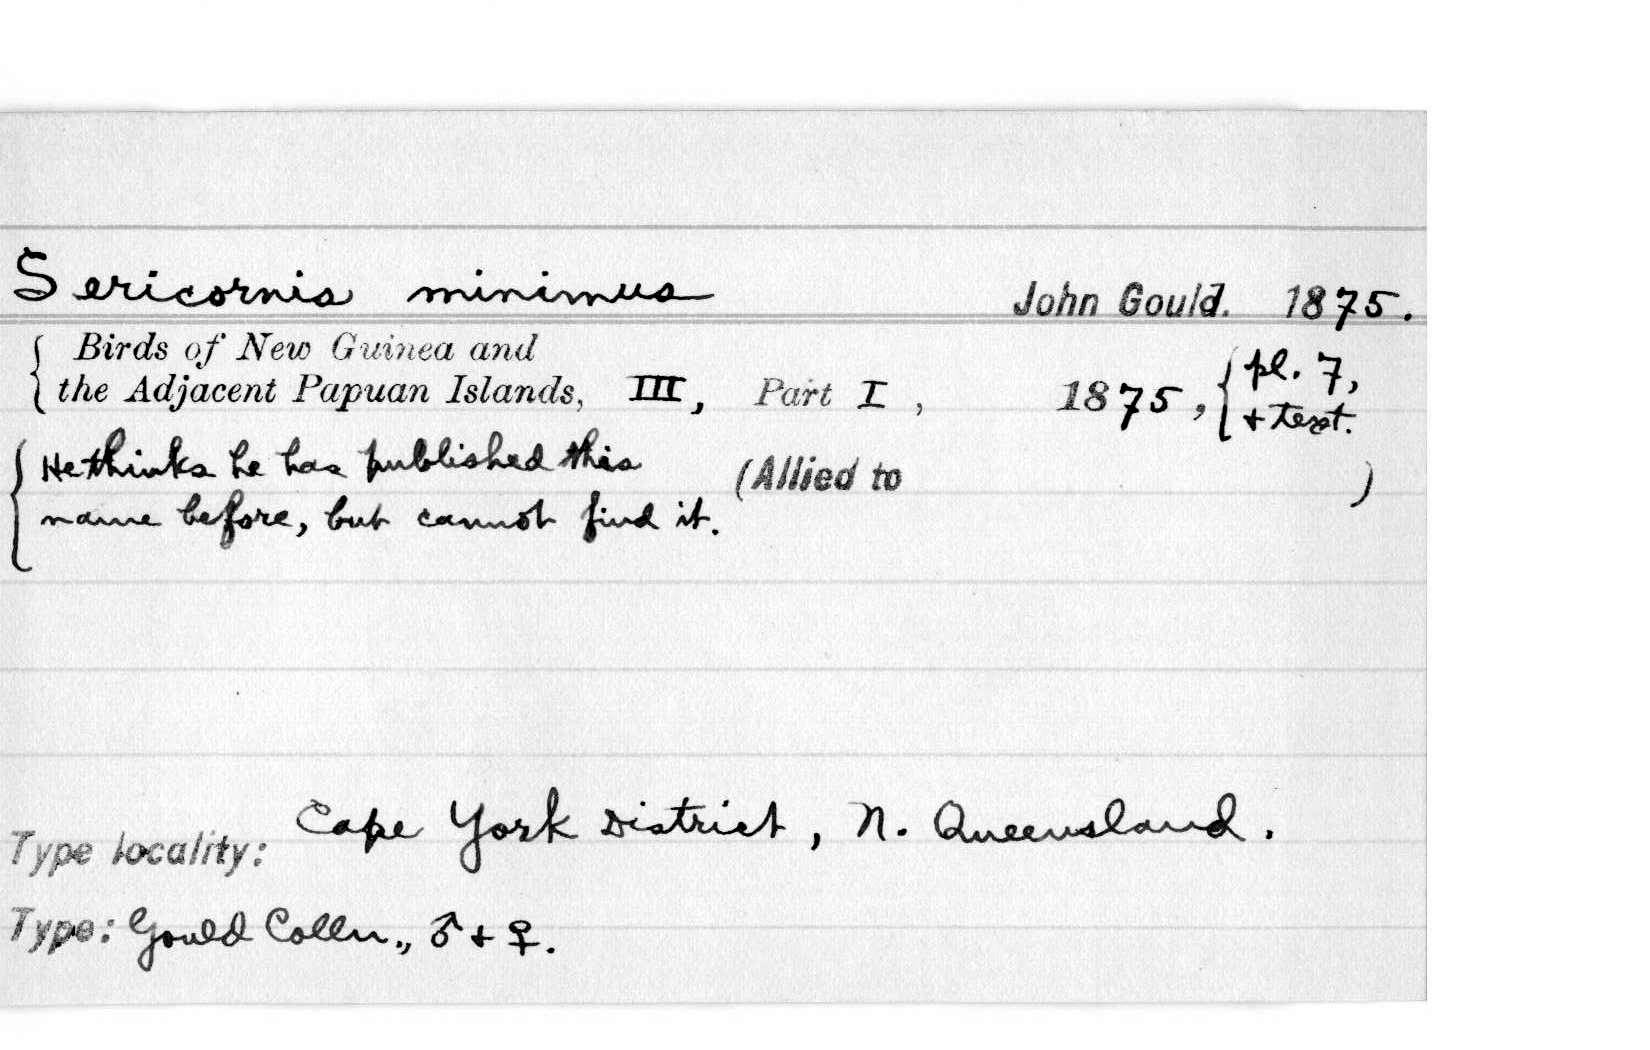 Sericornis minimus John Gould. 1875.
Birds of New Guinea and
the Adjacent Papuan Islands, III, Part I, 1875, pl. 7,
+ text.
He thinks he has published this (Allied to )
name before, but cannot find it.
Type locality: Cape York District, N. Queensland.
Type: Gould Colln., ♂ + ♀.